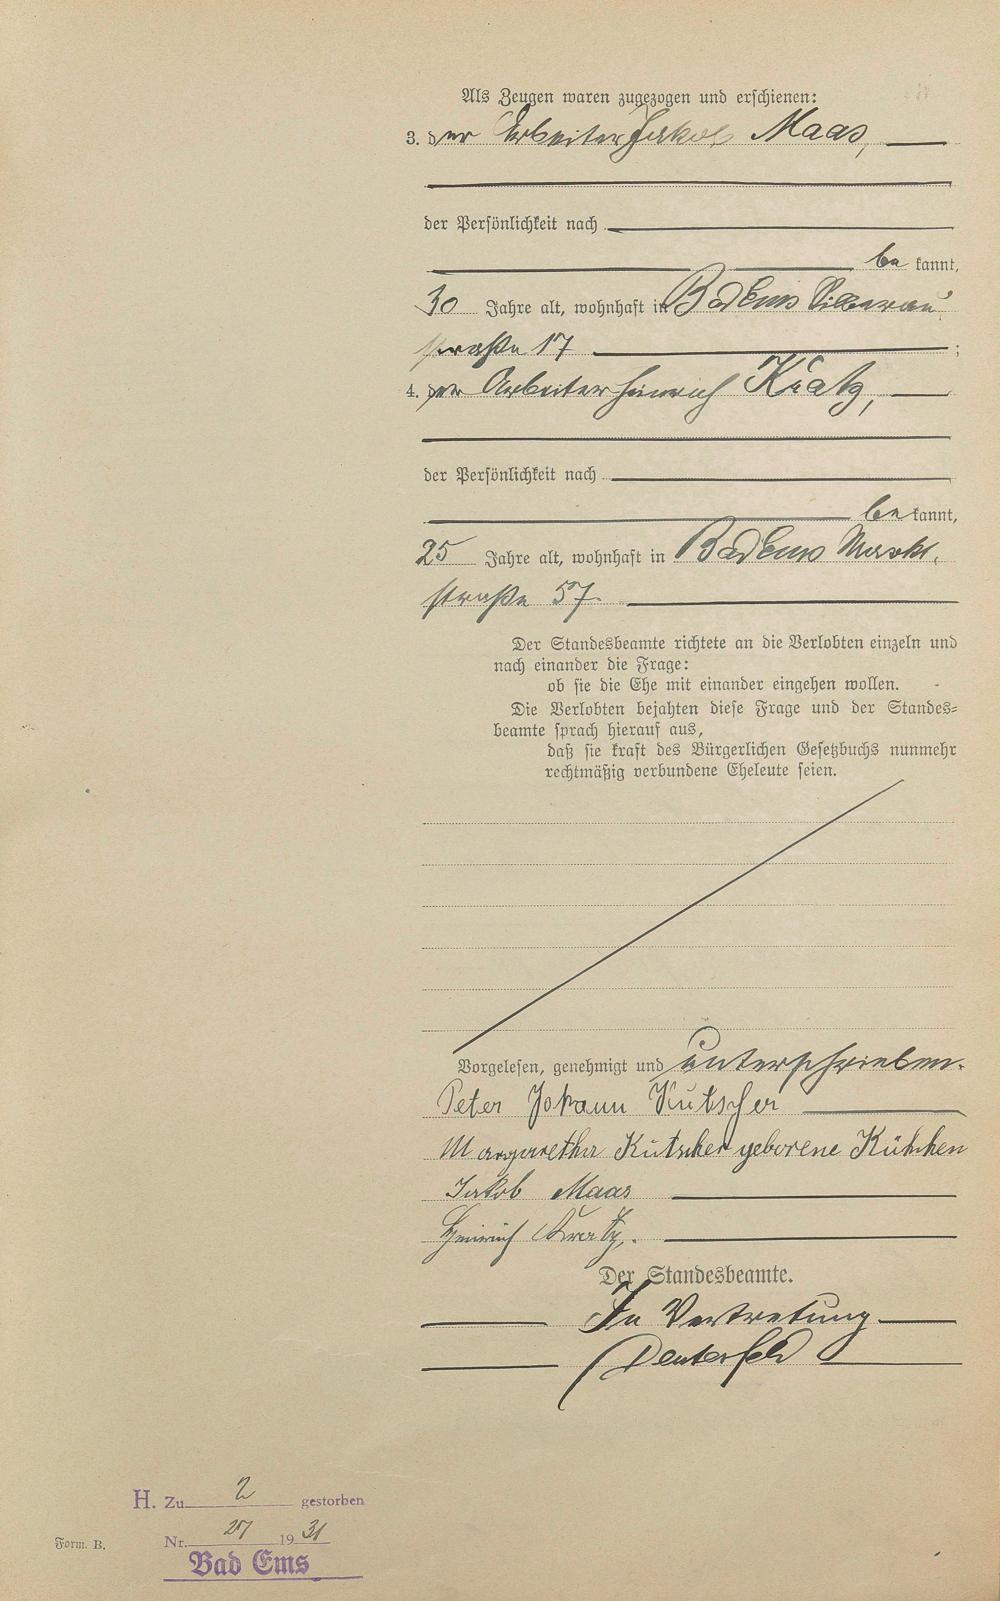 Als Zeugen waren zugezogen und erschienen:
3. der Arbeiter Jakob Maas,
der Persönlichkeit nach
be kannt,
30 Jahre alt, wohnhaft in Bad Ems Silberau-
straße 17 ;
4. der Arbeiter Heinrich Kratz,
der Persönlichkeit nach
be kannt,
25 Jahre alt, wohnhaft in Bad Ems Markt-
straße 57.
Der Standesbeamte richtete an die Verlobten einzeln und
nach einander die Frage:
ob sie die Ehe mit einander eingehen wollen.
Die Verlobten bejahten diese Frage und der Standes-
beamte sprach hierauf aus,
daß sie kraft des Bürgerlichen Gesetzbuchs nunmehr
rechtmäßig verbundene Eheleute seien.
Vorgelesen, genehmigt und unterschrieben.
Peter Johann Kutscher
Margaretha Kutscher geborene Kühchen
Jakob Maas
Heinrich Kratz.
Der Standesbeamte.
In Vertretung
H. Zu 2 gestorben
Nr. 27 1931
Form. B.
Bad Ems